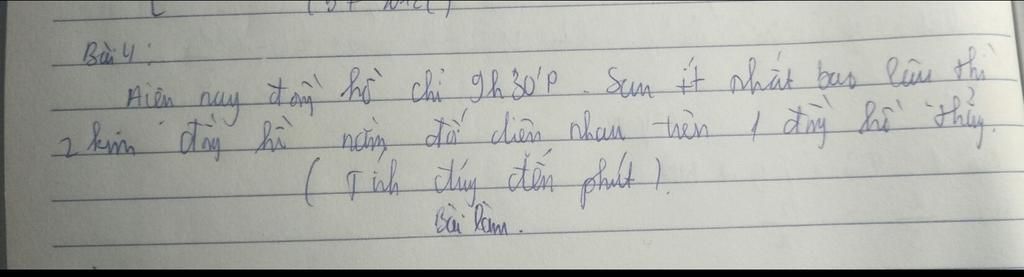 Bài 4:
Hiện nay đồng hồ chỉ 9h30'P. Sau ít nhất bao lâu thì
2 kim đồng hồ nằm đối diện nhau trên 1 đường thẳng.
(Tính đúng đến phút).
Bài làm.